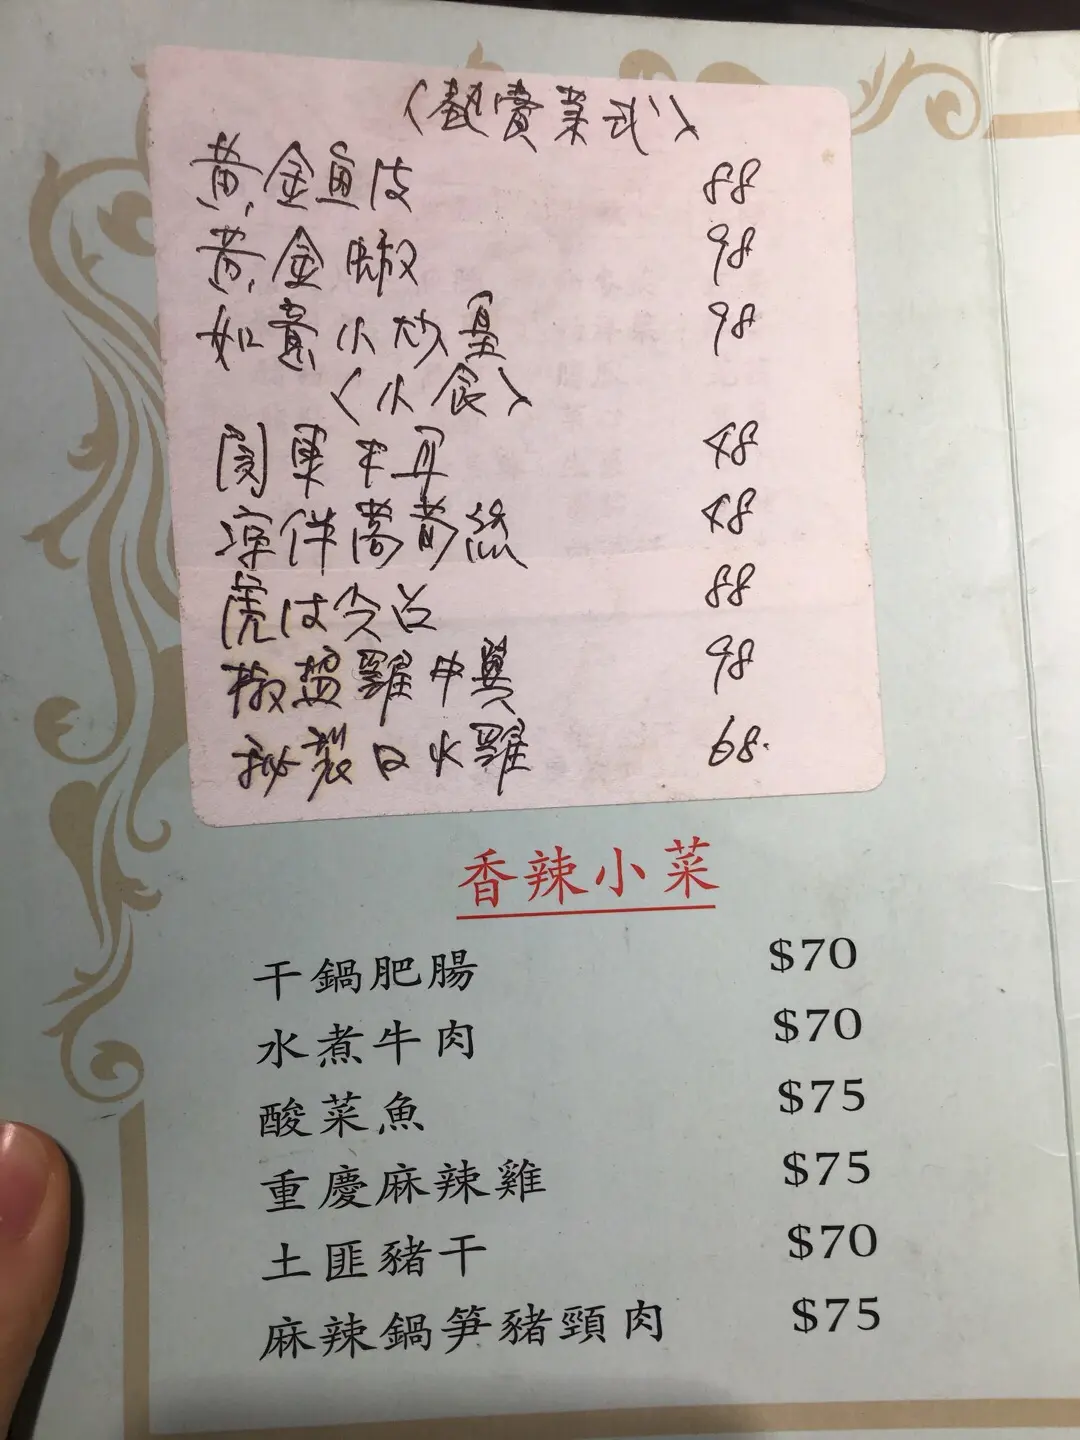 (熱賣菜式)
黃金魚皮 88
黃金蝦 98
如意小炒皇 98
(小食)
関東牛耳 48
涼伴萵苣絲 48
虎皮尖 88
椒鹽雞中翼 98
秘製口水雞 68
香辣小菜
干鍋肥腸 $70
水煮牛肉 $70
酸菜魚 $75
重慶麻辣雞 $75
土匪豬干 $70
麻辣鍋笋豬頸肉 $75